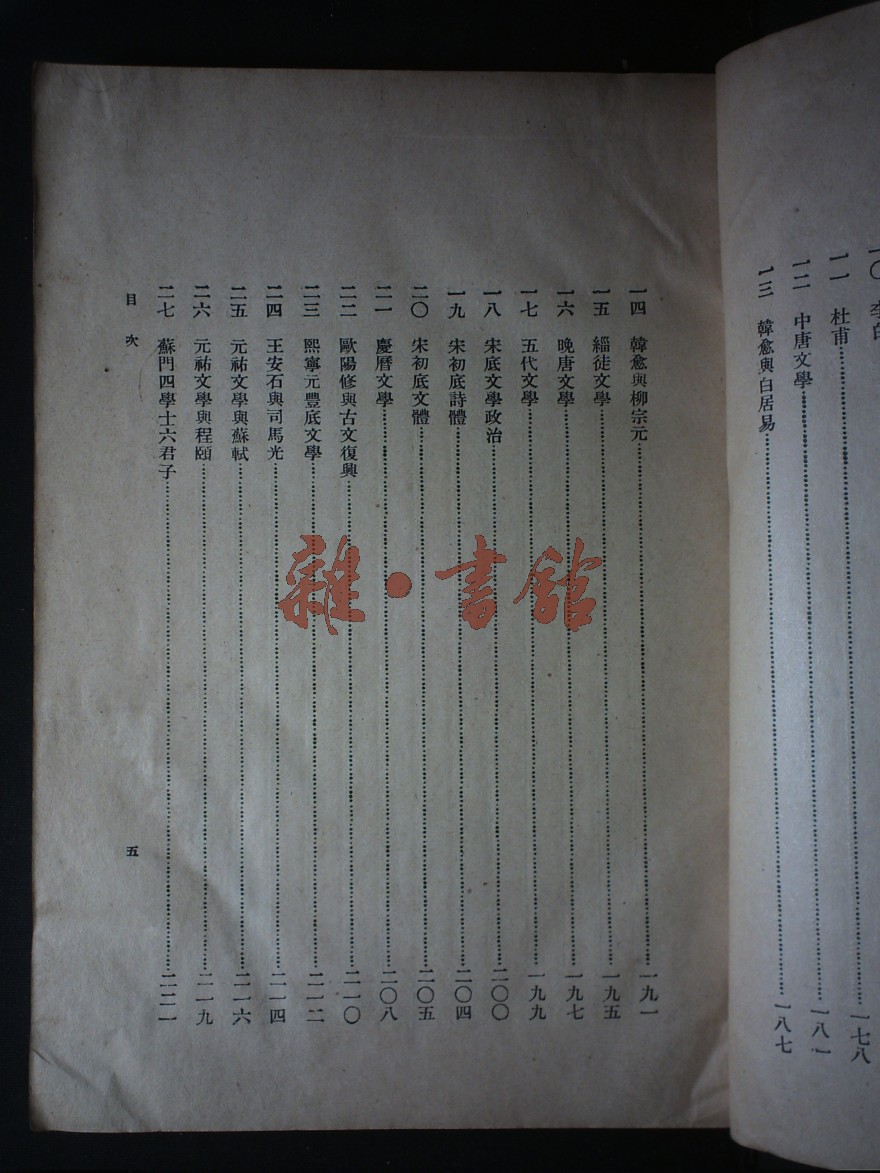 一〇　李白
一一　杜甫……一七八
一二　中唐文學……一八一
一三　韓愈與白居易……一八七
一四　韓愈與柳宗元……一九一
一五　緇徒文學……一九五
一六　晚唐文學……一九七
一七　五代文學……一九九
一八　宋底文學政治……二〇〇
一九　宋初底詩體……二〇四
二〇　宋初底文體……二〇五
二一　慶曆文學……二〇八
二二　歐陽修與古文復興……二一〇
二三　熙寧元豐底文學……二一二
二四　王安石與司馬光……二一四
二五　元祐文學與蘇軾……二一六
二六　元祐文學與程頤……二一九
二七　蘇門四學士六君子……二二一
目次
五
雜·書館